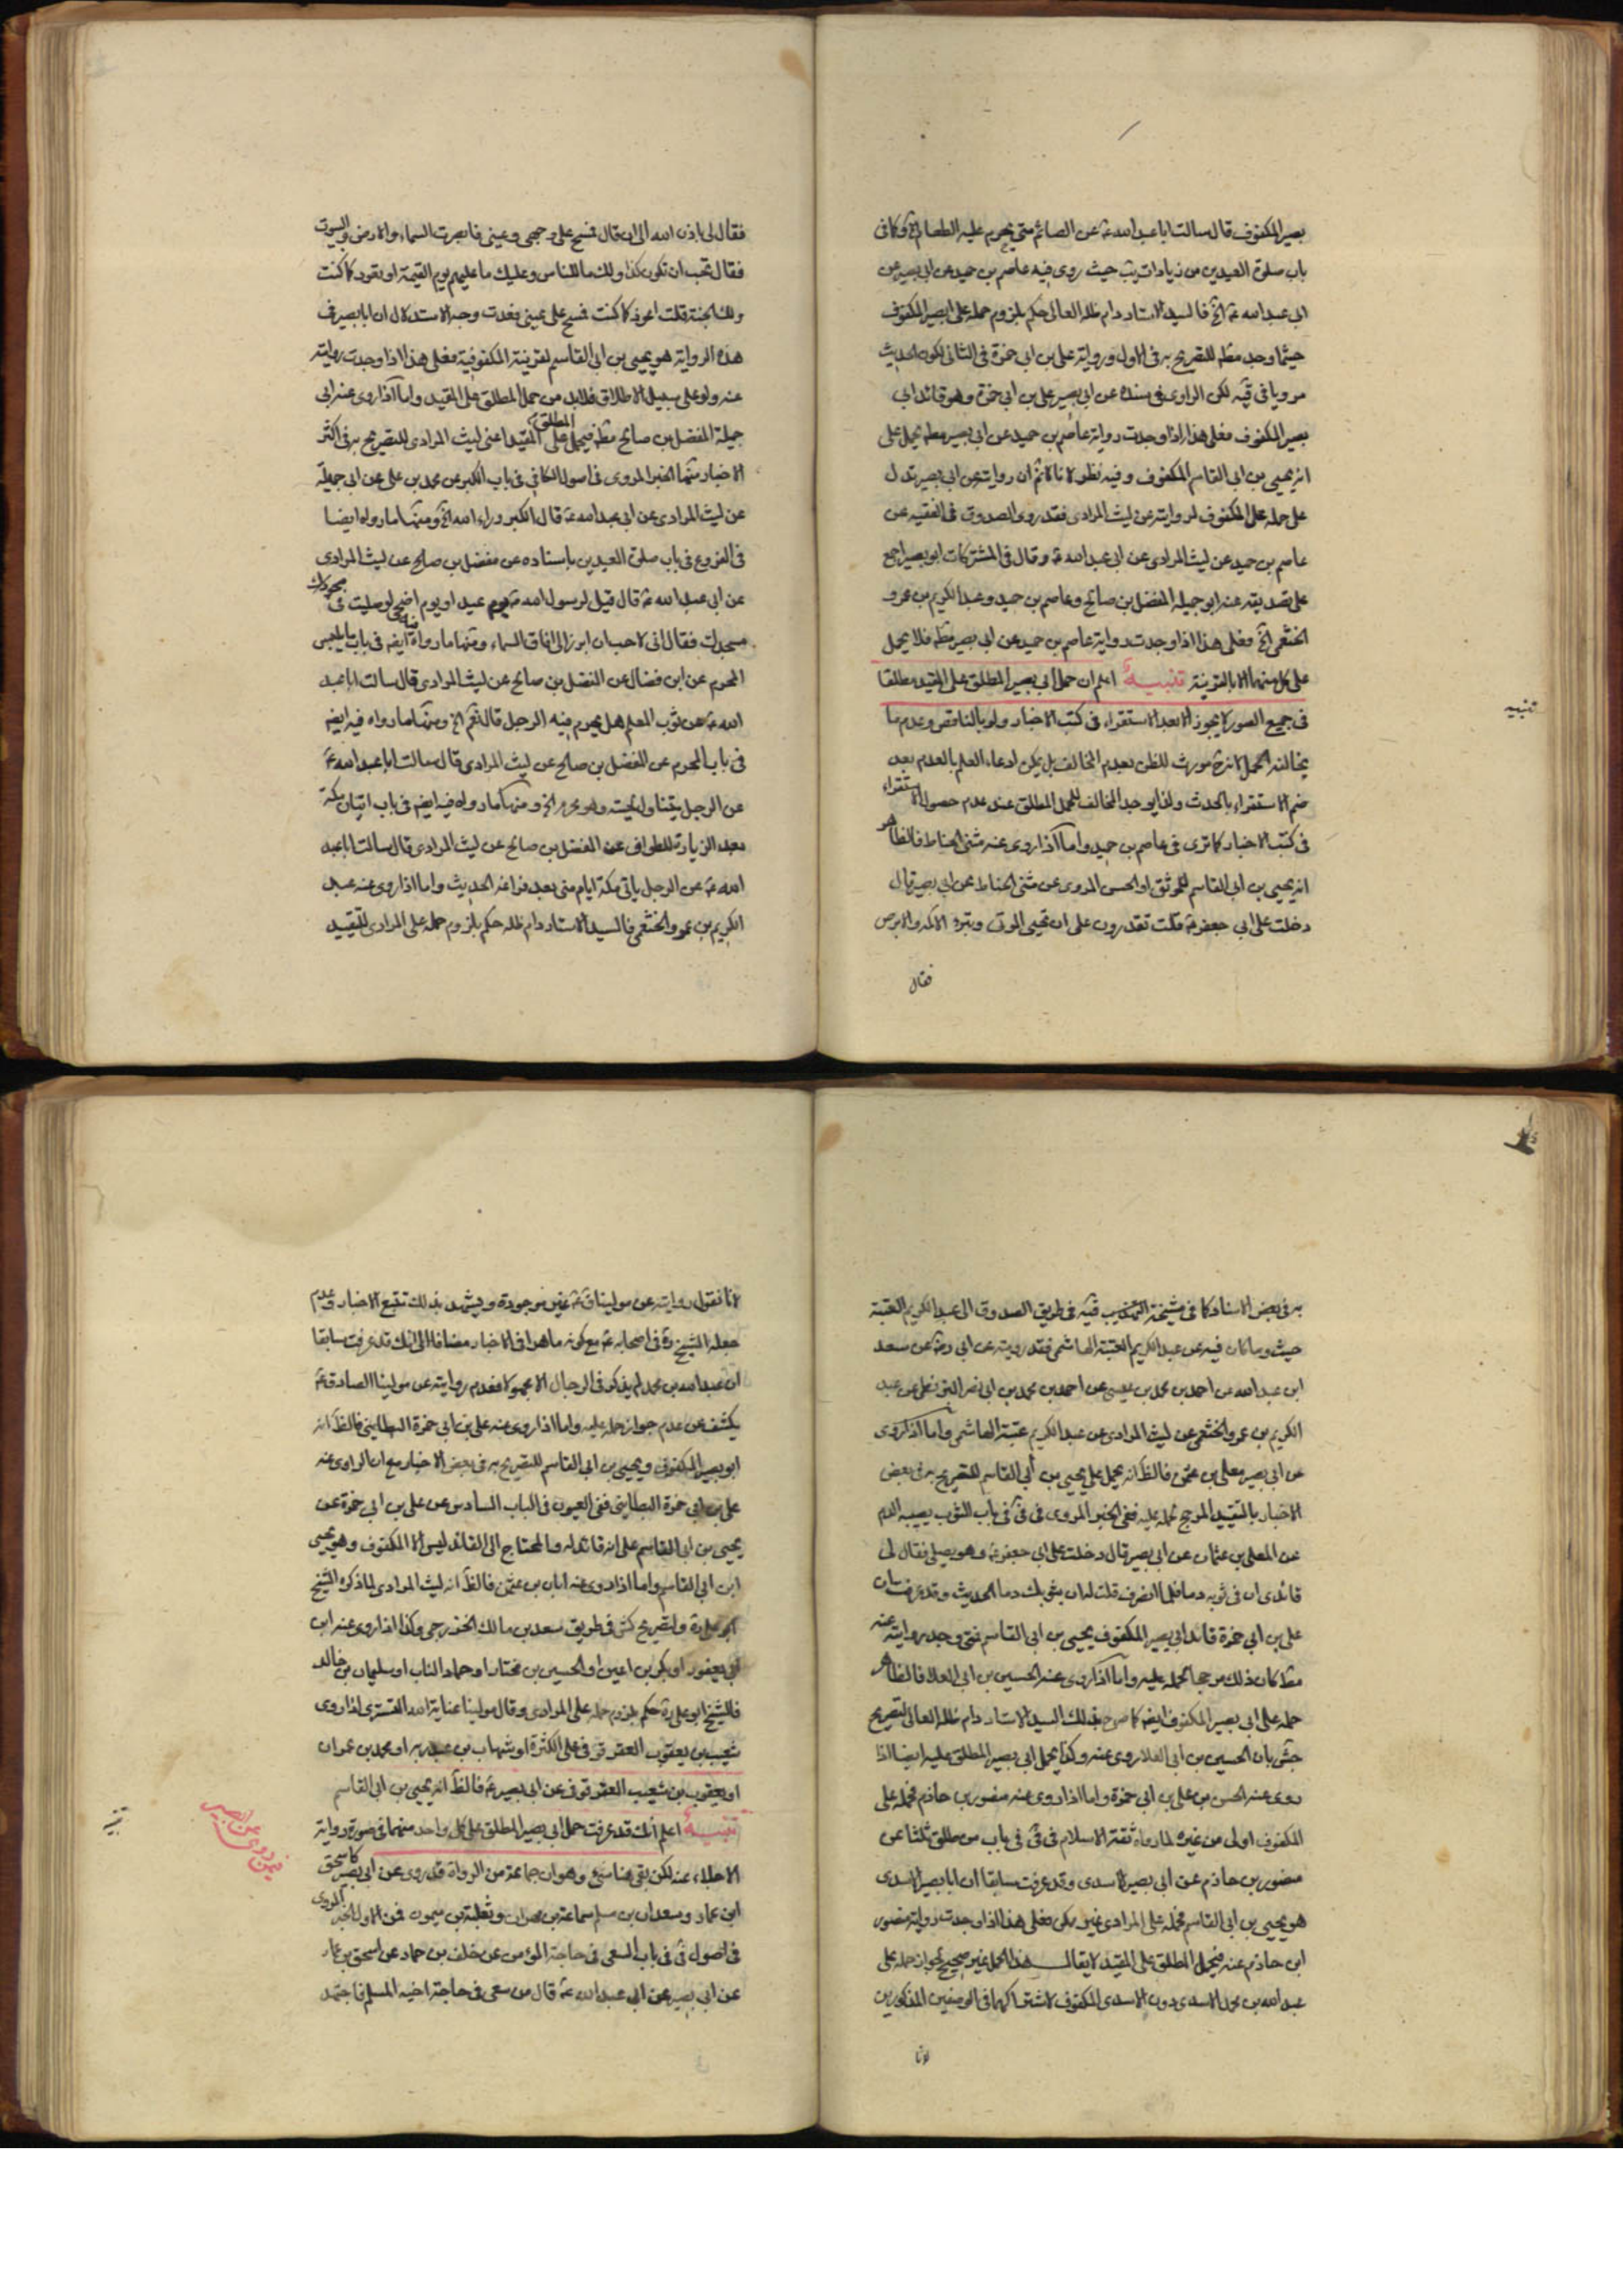 بصير المكفوف قال سالت ابا عبد الله ع عن الصائم متى يحرم عليه الطعام الخ وكما فى
باب صلوة العيدين من زيادات يب حيث روى فيه عاصم بن حميد عن ابى بصير عن
ابى عبد الله ع الخ فالسيد الاستاد دام ظله العالى حكم بلزوم حمله على ابى بصير المكفوف
حيثما وجد مطلقا للتصريح به فى الاول ورواية على بن ابى حمزة فى الثانى لكون الحديث
مرويا فى قيه لكن الراوى فى سنده عن ابى بصير على بن ابى حمزة وهو قائد ابى
بصير المكفوف فعلى هذا اذا وجدت رواية عاصم بن حميد عن ابى بصير مطلقا يحمل على
انه يحيى بن ابى القاسم المكفوف وفيه نظر لانا لا نم ان روايته عن ابى بصير تدل
على حمله على المكفوف لروايته عن ليث المرادى فقد روى الصدوق فى الفقيه عن
عاصم بن حميد عن ليث المرادى عن ابى عبد الله ع وقال فى المشتركات ابو بصير اجمع
على تصديقه عنه ابو جميله المفضل بن صالح وعاصم بن حميد وعبد الكريم بن عمرو
الخثعمى الخ فعلى هذا اذا وجدت رواية عاصم بن حميد عن ابى بصير مطلقا فلا يحمل
على كل منهما الا بالقرينة تنبيه اعلم ان حمل ابى بصير المطلق على المقيد مطلقا
تنبيه
فى جميع الصور لا يجوز الا بعد الاستقراء فى كتب الاخبار ولو بالناقص وعدم ما
يخالف الحمل لانه ح مورث للظن بعدم المخالف بل يمكن ادعاء العلم بالعدم بعد
ضم الاستقراء بالحدث ولذا يوجد المخالف للحمل المطلق عند عدم حصول الاستقراء
فى كتب الاخبار كما ترى فى عاصم بن حميد واما اذا روى عنه مثنى الحناط فالظاهر
انه يحيى بن ابى القاسم للموثق او الحسن المروى عن مثنى الحناط عن ابى بصير قال
دخلت على ابى جعفر ع فقلت تقدرون على ان تحيى الموتى وتبرء الاكمه والابرص
فقال
فقال لى باذن الله الى ان قال فمسح على وجهى وعينى فابصرت السماء والارض والبيوت
فقال تحب ان تكون كذا ولك ما للناس وعليك ما عليهم يوم القيمة او تعود كما كنت
ولك الجنة قلت اعود كما كنت فمسح على عينى فعدت وجه الاستدلال ان ابا بصير فى
هذه الرواية هو يحيى بن ابى القاسم لقرينة المكفوفية فعلى هذا اذا وجدت روايته
عنه ولو على سبيل الاطلاق فلابد من حمل المطلق على المقيد واما اذا روى عنه ابى
جميلة المفضل بن صالح مطلقا فيحمل المطلق على المقيد اعنى ليث المرادى للتصريح به فى اكثر
الاخبار منها الخبر المروى فى اصول الكافى فى باب الكبر عن محمد بن على عن ابى جميلة
عن ليث المرادى عن ابى عبد الله ع قال الكبر رداء الله الخ ومنها ما رواه ايضا
فى الفروع فى باب صلوة العيدين باسناده عن مفضل بن صالح عن ليث المرادى
عن ابى عبد الله ع قال قيل لرسول الله ص يوم عيد او يوم اضحى لو صليت فى
مسجدك فقال انى لاحب ان ابرز الى افاق السماء ومنها ما رواه فيه ايضا فى باب ما يلبس
المحرم عن ابن فضال عن المفضل بن صالح عن ليث المرادى قال سالت ابا عبد
الله ع عن ثوب المعلم هل يحرم فيه الرجل قال نعم الخ ومنها ما رواه فيه ايضا
فى باب المحرم عن المفضل بن صالح عن ليث المرادى قال سالت ابا عبد الله ع
عن الرجل يتناول لحيته وهو محرم الخ ومنها ما رواه فيه ايضا فى باب اتيان مكة
بعد الزيارة للطواف عن المفضل بن صالح عن ليث المرادى قال سالت ابا عبد
الله ع عن الرجل ياتى مكة ايام منى بعد فراغه الحديث واما اذا روى عنه عبد
الكريم بن عمرو الخثعمى فالسيد الاستاد دام ظله حكم بلزوم حمله على المرادى للتقييد
به فى بعض الاسناد كما فى مشيخة قيه فى طريق الصدوق الى عبد الكريم العتبة
حيث وما كان فيه عن عبد الكريم العتبة الهاشمى فقد رويته عن ابى ره عن سعد
ابن عبد الله عن احمد بن محمد بن عيسى عن احمد بن محمد بن ابى نصر البزنطى عن عبد
الكريم بن عمرو الخثعمى عن ليث المرادى عن عبد الكريم عتبة الهاشمى واما اذا روى
عن ابى بصير معلى بن عثمن فالظ انه يحمل على يحيى بن ابى القاسم للتصريح به فى بعض
الاخبار بالتقييد المرجح لحمله عليه ففى الخبر المروى فى فى باب الثوب يصيبه الدم
عن المعلى بن عثمان عن ابى بصير قال دخلت على ابى جعفر ع وهو يصلى فقال لى
قائدى ان فى ثوبه دما فلما انصرف قلت له ان بثوبك دما الحديث وقد عرفت بان
على بن ابى حمزة قائد ابى بصير المكفوف يحيى بن ابى القاسم فمتى وجد روايته عنه
مطلقا كان ذلك مرجحا لحمله عليه واما اذا روى عنه الحسين بن ابى العلا فالظاهر
حمله على ابى بصير المكفوف ايضا كما صرح بذلك السيد الاستاد دام ظله العالى لتصريح
جش بان الحسين بن ابى العلا روى عنه وكذا يحمل ابى بصير المطلق عليه ايضا اذا
روى عنه الحسن بن على بن ابى حمزة واما اذا روى عنه منصور بن حازم فحمله على
المكفوف اولى من غيره لما رواه ثقة الاسلام فى فى فى باب من طلق ثلثا عن
منصور بن حازم عن ابى بصير الاسدى وقد عرفت سابقا ان ابا بصير الاسدى
هو يحيى بن ابى القاسم فحمله على المرادى غير ممكن فعلى هذا اذا وجدت رواية منصور
ابن حازم عنه فيحمل المطلق على المقيد لا يقال هذا الحمل غير صحيح لجواز حمله على
عبد الله بن محمد الاسدى دون الاسدى المكفوف لاشتراكهما فى الوصفين المذكورين
لانا
لانا نقول روايته عن مولينا ق ع غير موجودة ويشهد بذلك تتبع الاخبار وعدم
جعله الشيخ ره فى اصحابه ع مع كونه ماهرا فى الاخبار مضافا الى انك قد عرفت سابقا
ان عبد الله بن محمد لم يذكر فى الرجال الا مجهولا فعدم روايته عن مولينا الصادق ع
يكشف عن عدم جواز حمله عليه واما اذا روى عنه على بن ابى حمزة البطاينى فالظ انه
ابو بصير المكفوف ويحيى بن ابى القاسم للتصريح به فى بعض الاخبار مع ان الراوى عنه
على بن ابى حمزة البطاينى ففى العيون فى الباب السادس عن على بن ابى حمزة عن
يحيى بن ابى القاسم على انه قائد له والمحتاج الى القائد ليس الا المكفوف وهو يحيى
ابن ابى القاسم واما اذا روى عنه ابان بن عثمن فالظ انه ليث المرادى لما ذكره الشيخ
ابو على ره ولتصريح كش فى طريق سعد بن مالك الخدرى وكذا اذا روى عنه ابن
ابى يعفور او بكير بن اعين او الحسين بن مختار او حماد الناب او سليمان بن خالد
فالشيخ ابو على ره حكم بلزوم حمله على المرادى وقال مولينا عناية الله التسترى اذا روى
شعيب بن يعقوب العقرقوفى على الكثرة او شهاب بن عبد ربه او محمد بن عمران
او يعقوب بن شعيب العقرقوفى عن ابى بصير ع فالظ انه يحيى بن ابى القاسم
تنبيه اعلم انك قد عرفت حمل ابى بصير المطلق على كل واحد منهما فى صورة رواية
تنبيه
الاجلاء عنه لكن بقى هنا شئ وهو ان جماعة من الرواة قد روى عن ابى بصير كاسحق
ابن عمار وسعدان بن مسلم سماعة بن مهران وثعلبة بن ميمون فمن الاول الخبر المروى
فى اصول فى فى باب السعى فى حاجة المؤمن عن خلف بن حماد عن اسحق بن عمار
عن ابى بصير عن ابى عبد الله ع قال من سعى فى حاجة اخيه المسلم فاجتهد